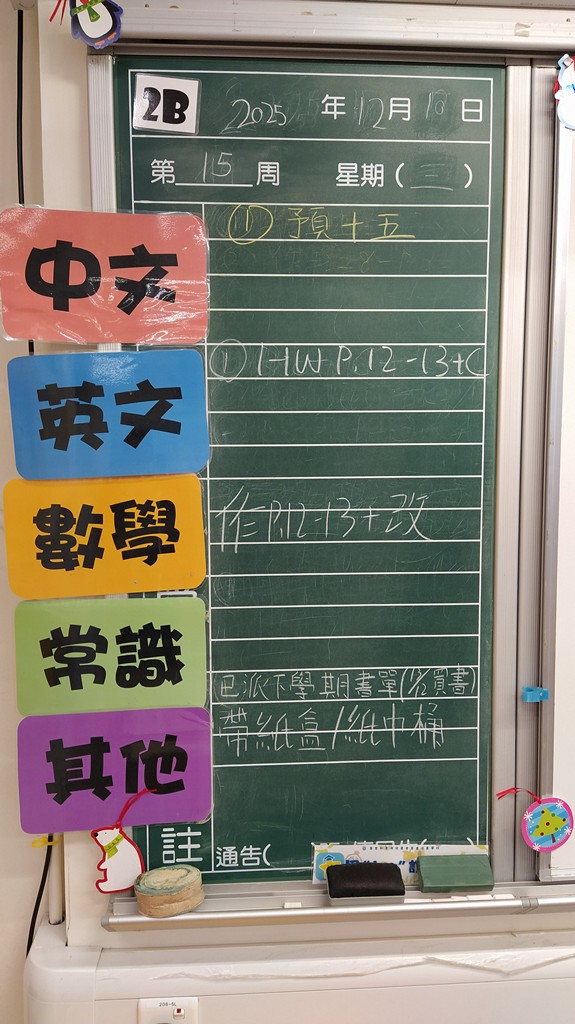 2B 2025 年 12 月 10 日
第 15 周 星期(三)
中文 ① 預十五
英文 ① HW P.12-13+C
數學 作P.12-13+改
常識
其他 已派下學期書單(12/12買書)
帶紙盒/紙巾桶
註 通告(
208-5L